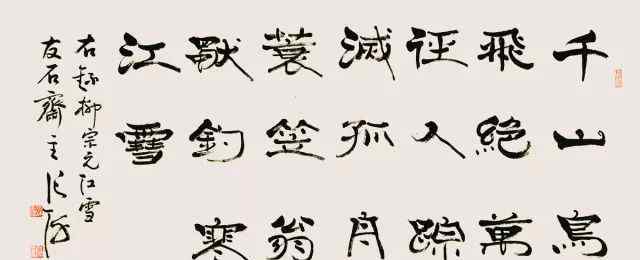 千山鳥
飛絕萬
徑人踪
滅孤舟
蓑笠翁
獨釣寒
江雪
右錄柳宗元江雪
友石齋主